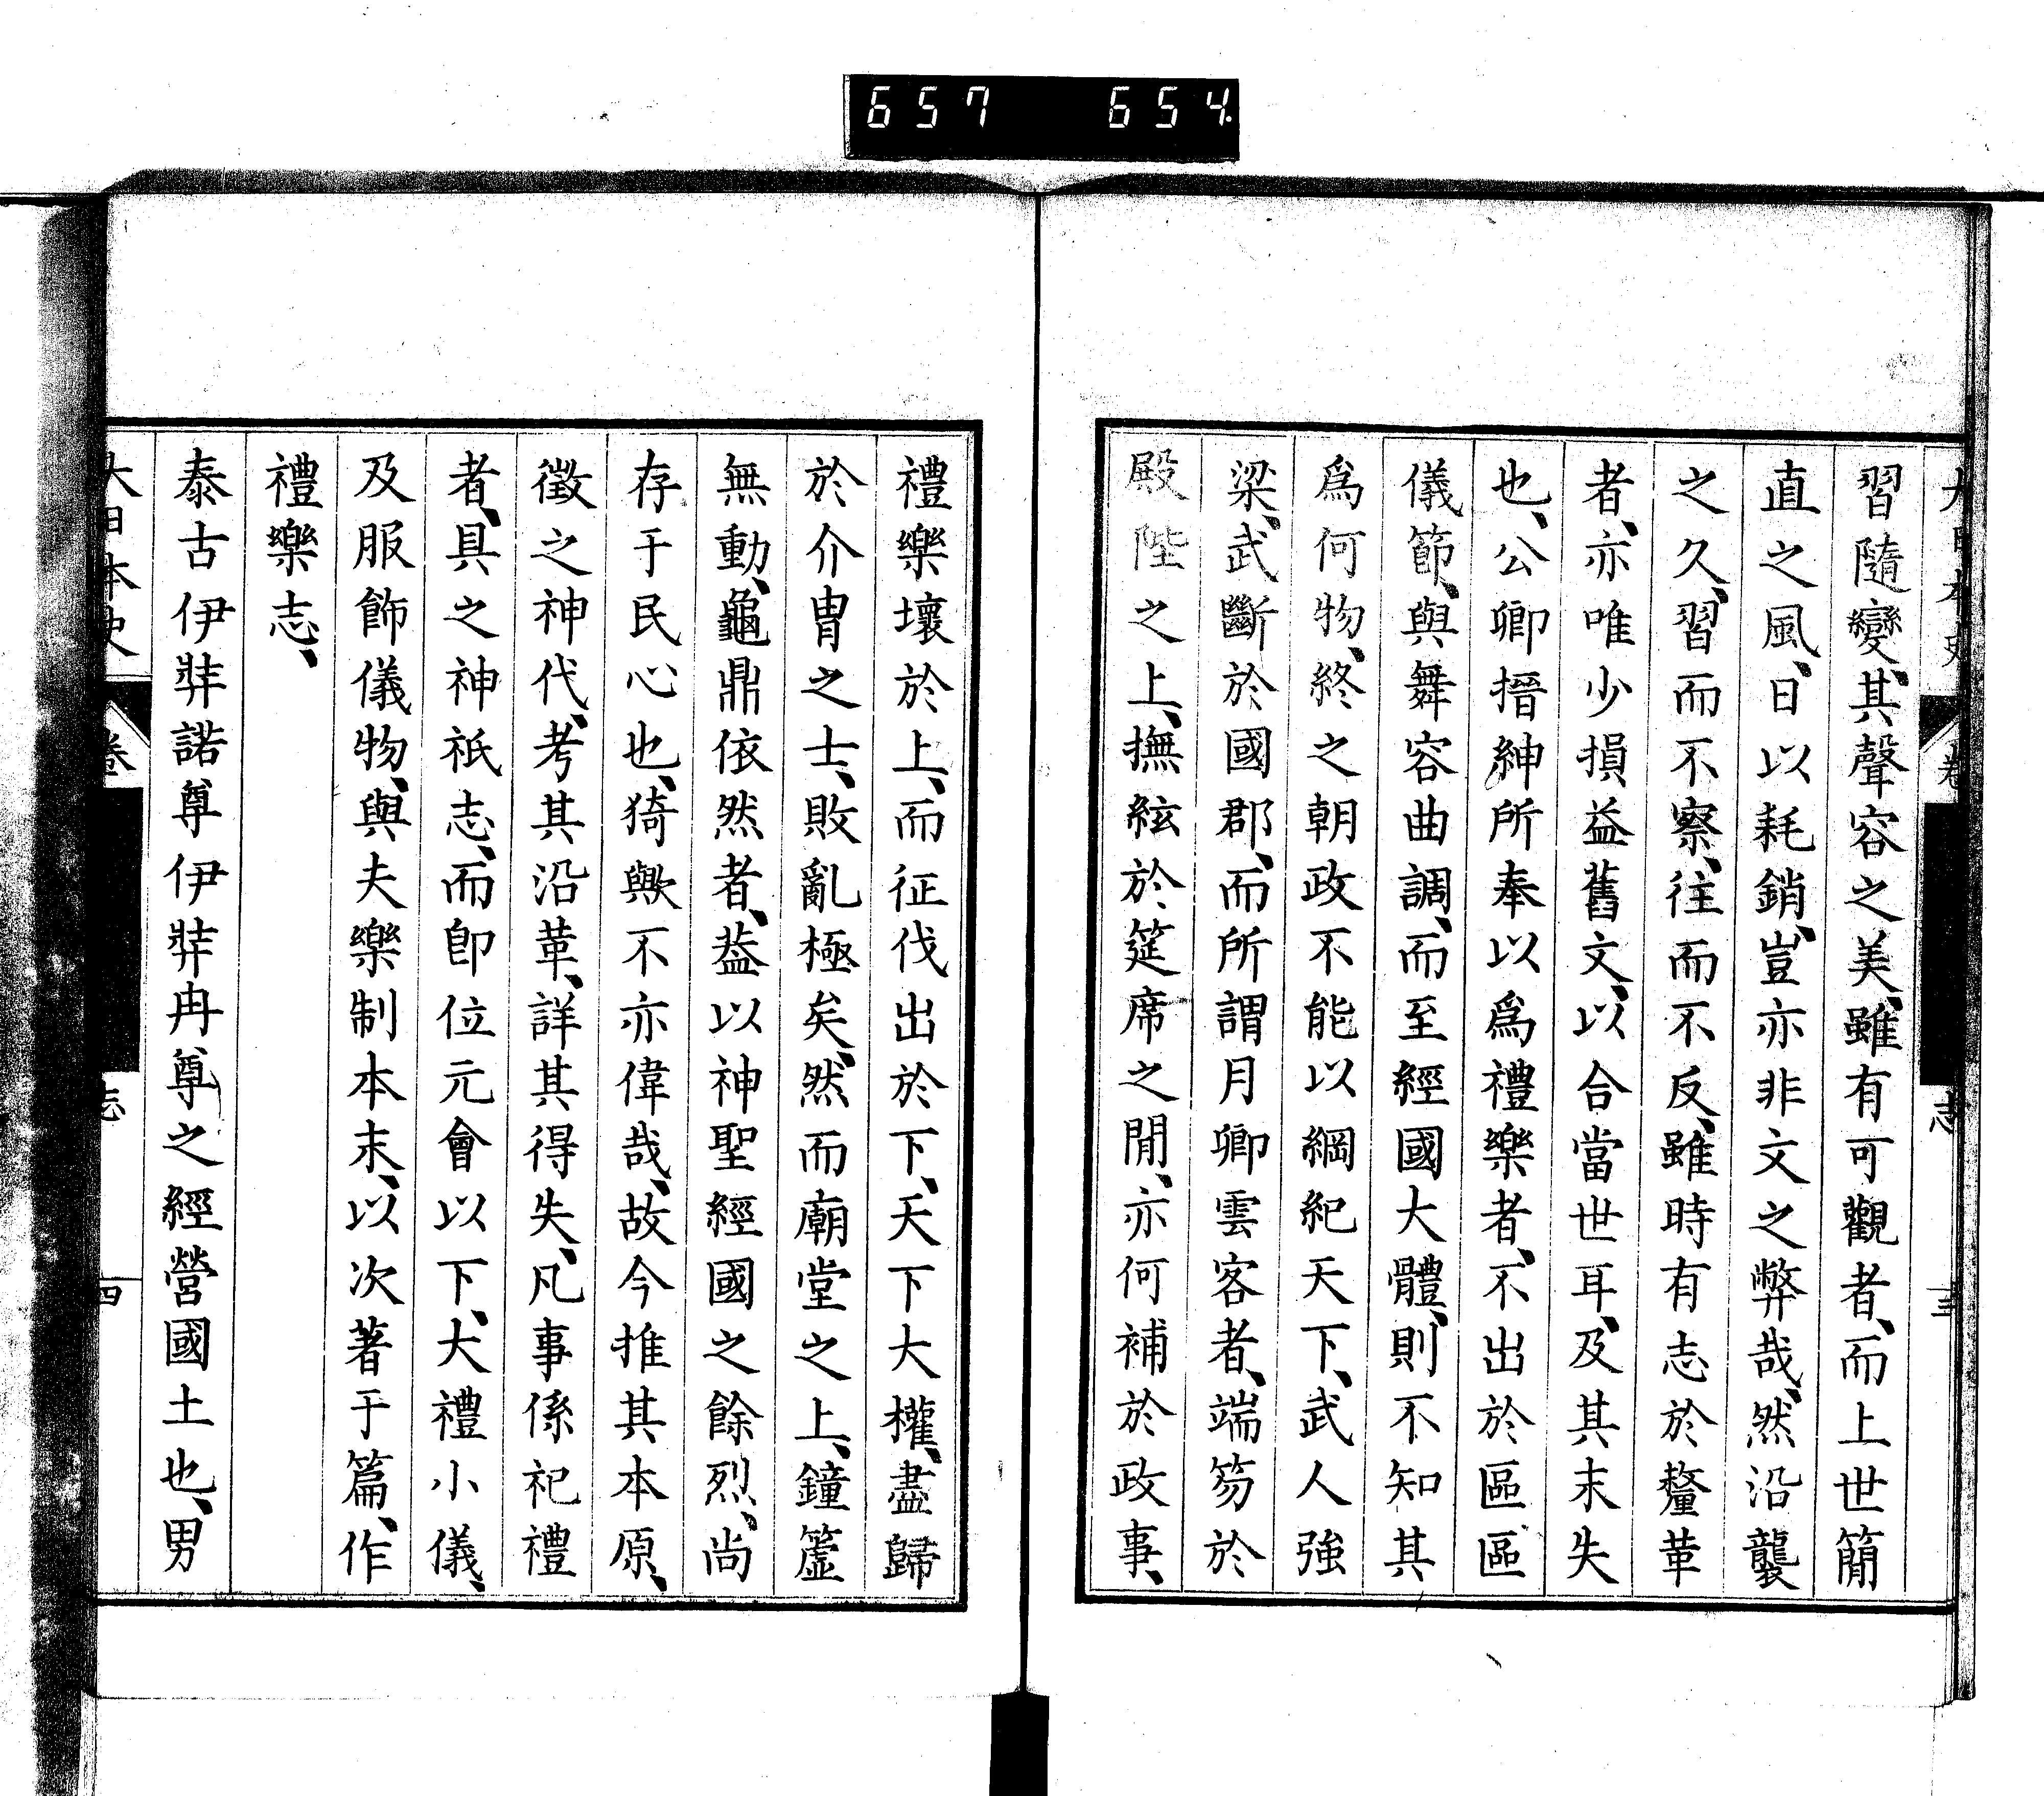 657 654
大日本史 卷 志 三
習隨變、其聲容之美、雖有可觀者、而上世簡
直之風、日以耗銷、豈亦非文之弊哉、然沿襲
之久、習而不察、往而不反、雖時有志於釐革
者、亦唯少損益舊文、以合當世耳、及其末失
也、公卿搢紳所奉以爲禮樂者、不出於區區
儀節、與舞容曲調、而至經國大體、則不知其
爲何物、終之朝政不能以綱紀天下、武人強
梁、武斷於國郡、而所謂月卿雲客者、端笏於
殿陛之上、撫絃於筵席之閒、亦何補於政事、
禮樂壞於上、而征伐出於下、天下大權、盡歸
於介冑之士、敗亂極矣、然而廟堂之上、鐘簴
無動、龜鼎依然者、葢以神聖經國之餘烈、尚
存于民心也、猗歟不亦偉哉、故今推其本原、
徵之神代、考其沿革、詳其得失、凡事係祀禮
者、具之神祇志、而卽位元會以下、大禮小儀、
及服飾儀物、與夫樂制本末、以次著于篇、作
禮樂志、
泰古伊弉諾尊伊弉冉尊之經營國土也、男
大日本史 卷 志 四